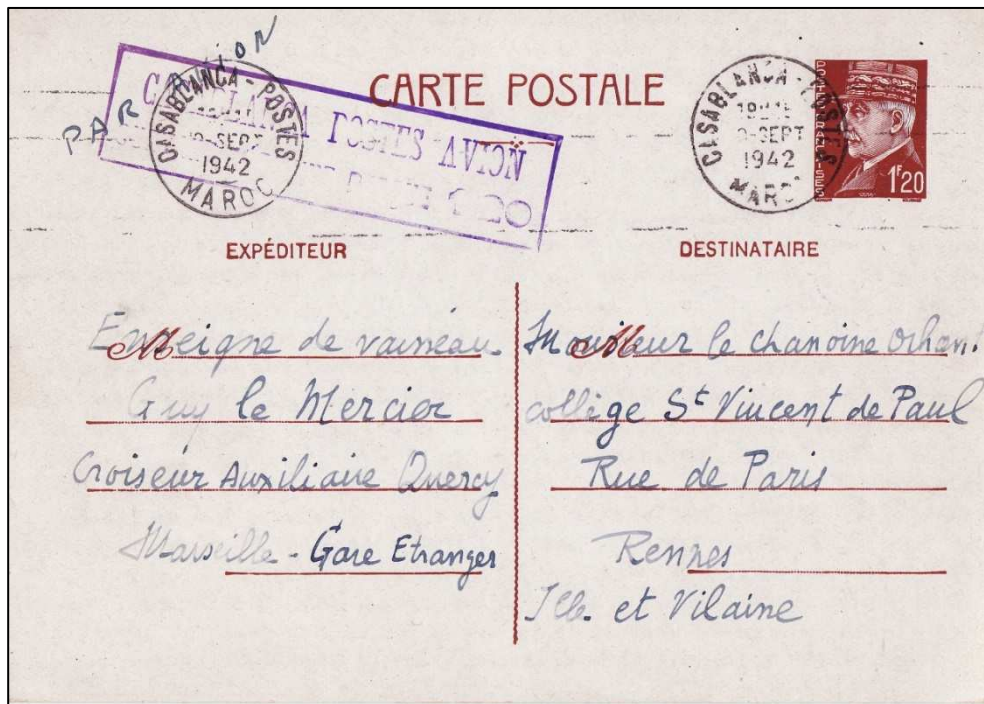 PAR AVION
CARTE POSTALE
CASABLANCA - POSTES
SEPT
1942
MAROC
POSTES AVION
CASABLANCA - POSTES
SEPT
1942
POSTES FRANÇAISES
1F20
EXPÉDITEUR
M
Enseigne de vaisseau
Guy le Mercier
Croiseur Auxiliaire Quercy
Marseille - Gare Etranger
DESTINATAIRE
M
Monsieur le chanoine
collège St Vincent de Paul
Rue de Paris
Rennes
Ille et Vilaine